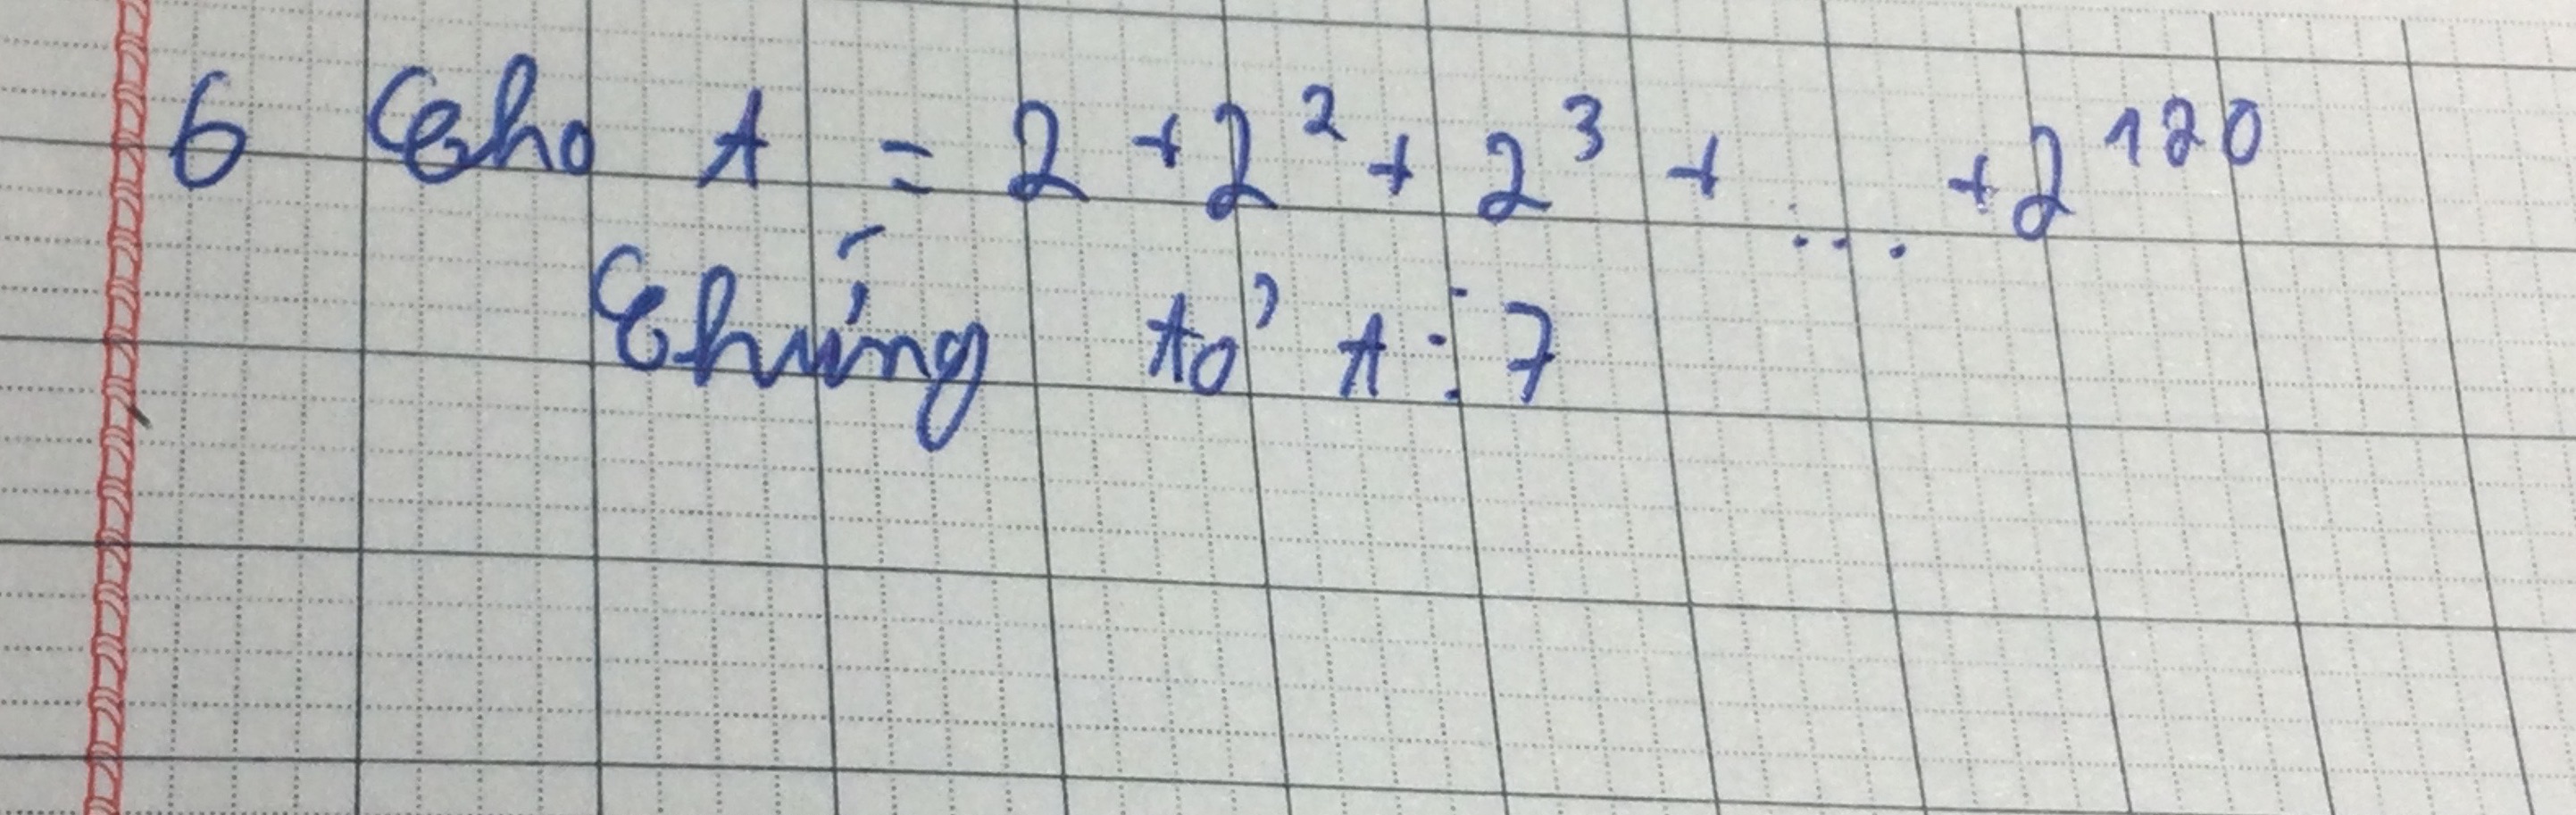 6 Cho A = 2 + 2² + 2³ + ... + 2¹²⁰
Chứng tỏ A ⋮ 7